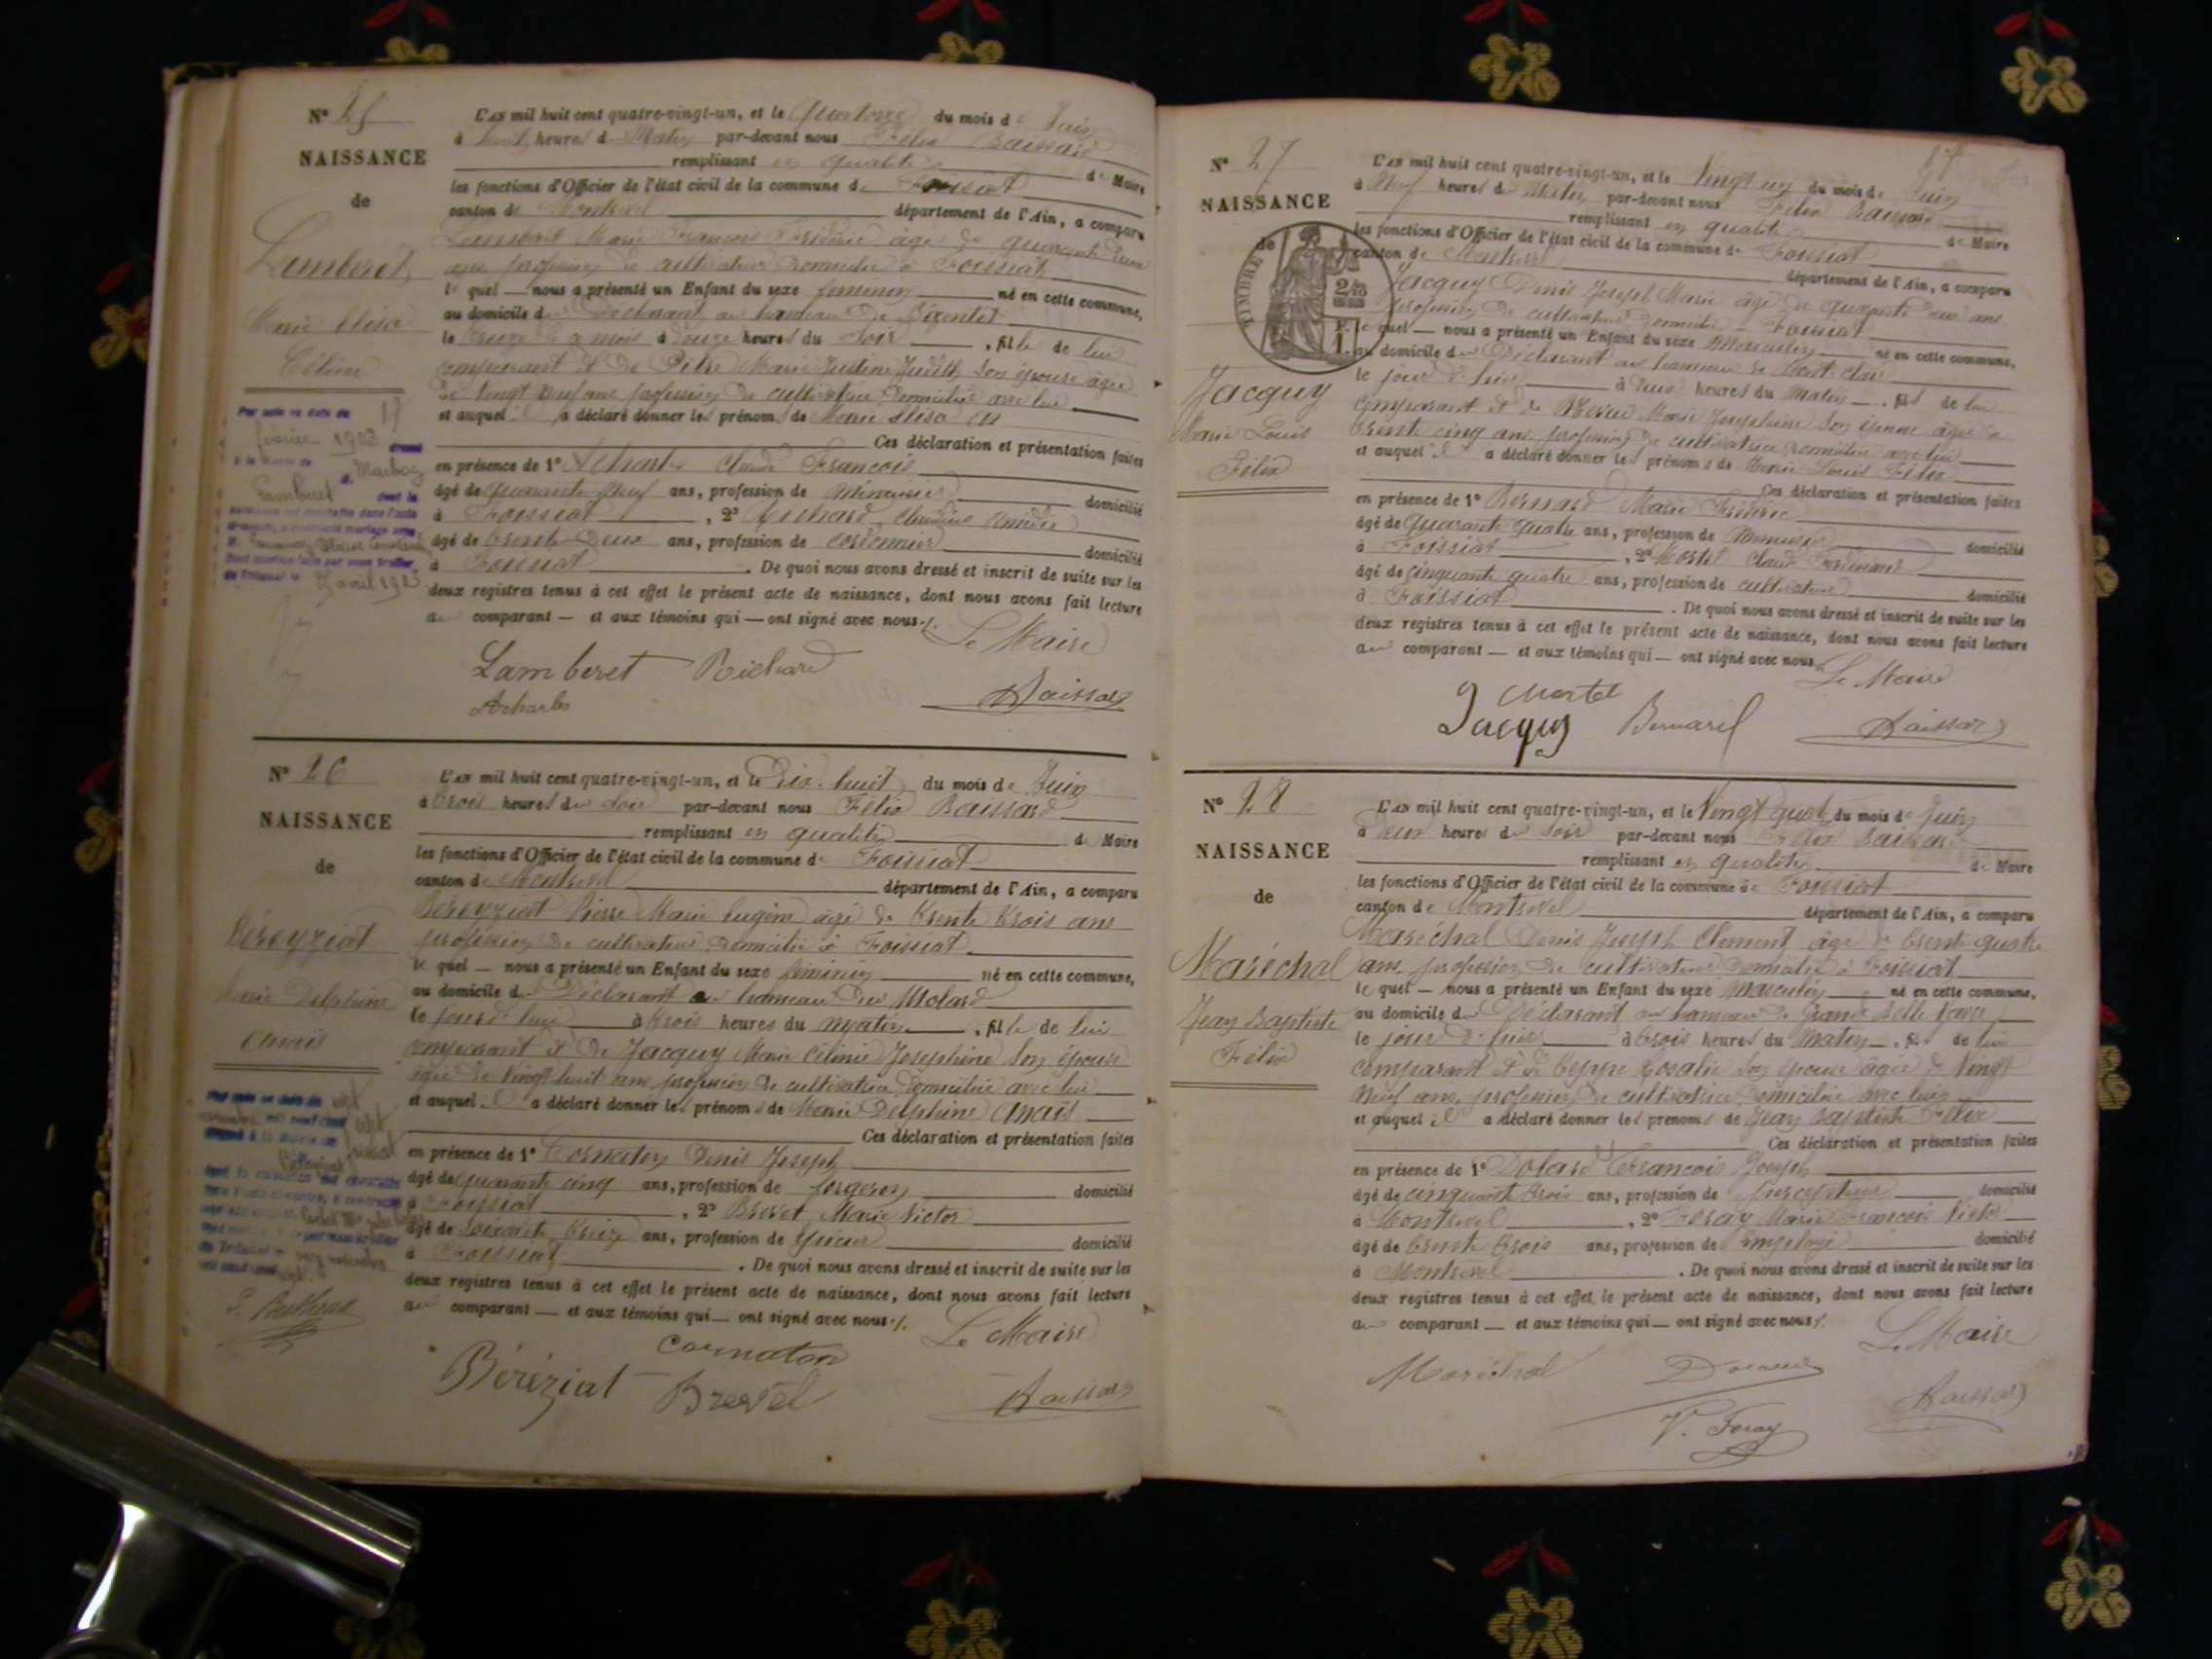 N° 25
NAISSANCE
de
Lamberet
Marie Elisa
Céline
Par acte en date du 17
février 1903
à la Mairie de Marboz
Lamberet dont la
du Tribunal le 7 avril 1903
L'an mil huit cent quatre-vingt-un, et le Quatorze du mois de Juin
à huit heures du Matin par-devant nous Félix Baissard
remplissant en qualité de Maire
les fonctions d'Officier de l'état civil de la commune de Foissiat
canton de Montrevel département de l'Ain, a comparu
Lamberet Marie François Frédéric âgé de quarante deux
ans profession de cultivateur domicilié à Foissiat
lequel — nous a présenté un Enfant du sexe féminin né en cette commune,
au domicile du Déclarant au hameau de
le treize du mois à douze heures du Soir , fille de lui
comparant et de Pitre Marie Justine Judith son épouse âgée
de Vingt neuf ans profession de cultivatrice domiciliée avec lui
et auquel il a déclaré donner les prénoms de Marie Elisa
Ces déclaration et présentation faites
en présence de 1° Acharles Claude François
âgé de Quarante Neuf ans, profession de Menuisier domicilié
à Foissiat , 2° Richard Claudius
âgé de trente deux ans, profession de cordonnier domicilié
à Foissiat . De quoi nous avons dressé et inscrit de suite sur les
deux registres tenus à cet effet le présent acte de naissance, dont nous avons fait lecture
au comparant — et aux témoins qui — ont signé avec nous ./.
Le Maire
Lamberet Richard
Acharles Baissard
N° 26
NAISSANCE
de
Béreyziat
Marie Delphine
Anaïs
L'an mil huit cent quatre-vingt-un, et le Dix-huit du mois de Juin
à trois heures du Soir par-devant nous Félix Baissard
remplissant en qualité de Maire
les fonctions d'Officier de l'état civil de la commune de Foissiat
canton de Montrevel département de l'Ain, a comparu
Béreyziat Pierre Marie Eugène âgé de trente trois ans
profession de cultivateur domicilié à Foissiat
lequel — nous a présenté un Enfant du sexe féminin né en cette commune,
au domicile du Déclarant au hameau du Molard
le jour d'hui à trois heures du matin , fille de lui
comparant et de Jacquy Marie Célinie Josephine son épouse
âgée de Vingt huit ans profession de cultivatrice domiciliée avec lui
et auquel il a déclaré donner les prénoms de Marie Delphine Anaïs
Ces déclaration et présentation faites
en présence de 1° Cornaton Denis Joseph
âgé de quarante cinq ans, profession de forgeron domicilié
à Foissiat , 2° Brevet Marie Victor
âgé de soixante treize ans, profession de domicilié
à Foissiat . De quoi nous avons dressé et inscrit de suite sur les
deux registres tenus à cet effet le présent acte de naissance, dont nous avons fait lecture
au comparant — et aux témoins qui — ont signé avec nous ./.
Le Maire
Cornaton
Béréziat Brevet Baissard
N° 27
NAISSANCE
de
TIMBRE
Jacquy
Marie Louis
Félix
L'an mil huit cent quatre-vingt-un, et le Vingt un du mois de Juin
à Neuf heures du Matin par-devant nous Félix Baissard
remplissant en qualité de Maire
les fonctions d'Officier de l'état civil de la commune de Foissiat
canton de Montrevel département de l'Ain, a comparu
Jacquy Denis Joseph Marie âgé de quarante deux ans
profession de cultivateur domicilié à Foissiat
lequel — nous a présenté un Enfant du sexe Masculin né en cette commune,
au domicile du Déclarant au hameau de Mont clair
le jour d'hui à deux heures du Matin , fils de lui
comparant et de Marie Josephine son épouse âgée de
trente cinq ans profession de cultivatrice domiciliée avec lui
et auquel il a déclaré donner les prénoms de Marie Louis Félix
Ces déclaration et présentation faites
en présence de 1° Bernard Marie Frédéric
âgé de Quarante quatre ans, profession de Menuisier domicilié
à Foissiat , 2° Mortel Claude Ferdinand
âgé de cinquante quatre ans, profession de cultivateur domicilié
à Foissiat . De quoi nous avons dressé et inscrit de suite sur les
deux registres tenus à cet effet le présent acte de naissance, dont nous avons fait lecture
au comparant — et aux témoins qui — ont signé avec nous
Le Maire
Mortel
Jacquy Bernard Baissard
N° 28
NAISSANCE
de
Maréchal
Jean Baptiste
Félix
L'an mil huit cent quatre-vingt-un, et le Vingt quatre du mois de Juin
à Deux heures du Soir par-devant nous Félix Baissard
remplissant en qualité de Maire
les fonctions d'Officier de l'état civil de la commune de Foissiat
canton de Montrevel département de l'Ain, a comparu
Maréchal Denis Joseph Clement âgé de trente quatre
ans profession de cultivateur domicilié à Foissiat
lequel — nous a présenté un Enfant du sexe Masculin né en cette commune,
au domicile du Déclarant au hameau de Grande
le jour d'hui à trois heures du Matin , fils de lui
comparant et de Teppe Rosalie son épouse âgée de Vingt
Neuf ans, profession de cultivatrice domiciliée avec lui
et auquel il a déclaré donner les prénoms de Jean Baptiste Félix
Ces déclaration et présentation faites
en présence de 1° François Joseph
âgé de cinquante trois ans, profession de Percepteur domicilié
à Montrevel , 2° Foray Marie François Victor
âgé de trente trois ans, profession de Employé domicilié
à Montrevel . De quoi nous avons dressé et inscrit de suite sur les
deux registres tenus à cet effet le présent acte de naissance, dont nous avons fait lecture
au comparant — et aux témoins qui — ont signé avec nous ./.
Le Maire
Maréchal
V. Foray Baissard